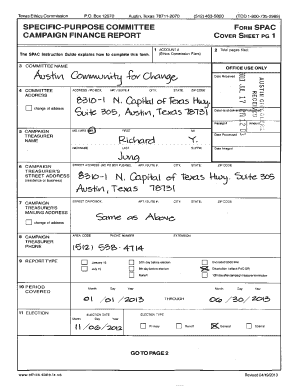 Texas Ethics Commission P.O. Box 12070 Austin, Texas 78711-2070 (512) 463-5800 (TDD 1-800-735-2989)
SPECIFIC-PURPOSE COMMITTEE
CAMPAIGN FINANCE REPORT
FORM SPAC
COVER SHEET PG 1
The SPAC Instruction Guide explains how to complete this form.
1 ACCOUNT #
(Ethics Commission Filers)
2 Total pages filed:
3 COMMITTEE NAME
Austin Community for Change
OFFICE USE ONLY
Date Received
4 COMMITTEE
ADDRESS
change of address
ADDRESS / PO BOX; APT / SUITE #; CITY; STATE; ZIP CODE
8310-1 N. Capital of Texas Hwy.
Suite 305, Austin, Texas 78731
RECEIVED
5 CAMPAIGN
TREASURER
NAME
MS / MRS / MR FIRST MI
Richard Y.
NICKNAME LAST SUFFIX
Jung
Receipt # Amount
Date Processed
Date Imaged
6 CAMPAIGN
TREASURER'S
STREET ADDRESS
(residence or business)
STREET ADDRESS (NO PO BOX PLEASE); APT / SUITE #; CITY; STATE; ZIP CODE
8310-1 N. Capital of Texas Hwy. Suite 305
Austin, Texas 78731
7 CAMPAIGN
TREASURER'S
MAILING ADDRESS
change of address
STREET OR PO BOX; APT / SUITE #; CITY; STATE; ZIP CODE
Same as Above
8 CAMPAIGN
TREASURER
PHONE
AREA CODE PHONE NUMBER EXTENSION
(512) 558-4714
9 REPORT TYPE
January 15
July 15
30th day before election
8th day before election
Runoff
Exceeded $500 limit
Dissolution (attach PAC-DR)
10th day after campaign treasurer termination
10 PERIOD
COVERED
Month Day Year
01 / 01 / 2013
THROUGH
Month Day Year
06 / 30 / 2013
11 ELECTION
ELECTION DATE
Month Day Year
11 / 06 / 2012
ELECTION TYPE
Primary
Runoff
General
Special
GO TO PAGE 2
www.ethics.state.tx.us